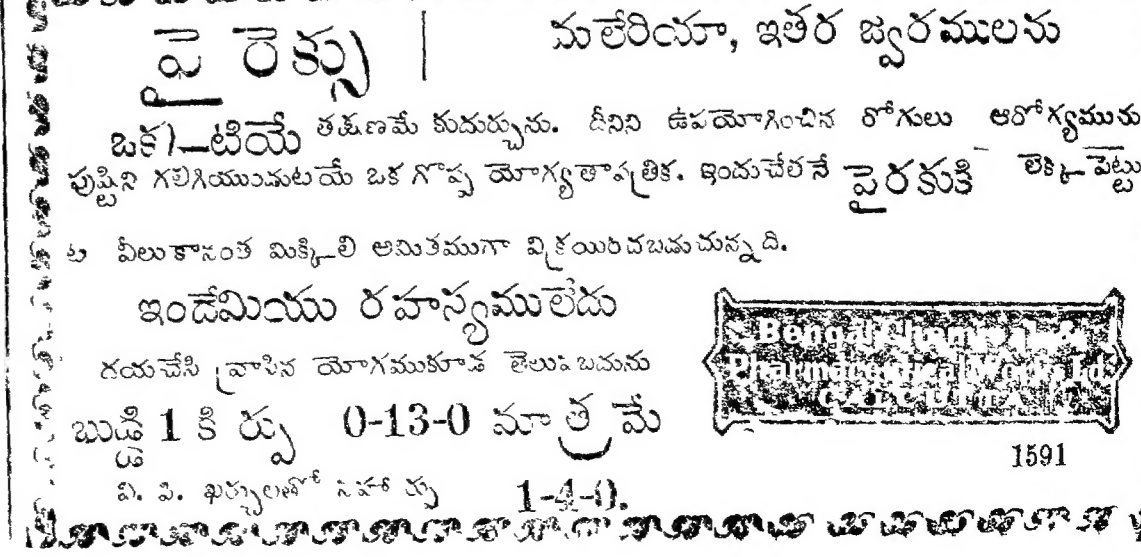 పై రెక్సు | మలేరియా, ఇతర జ్వరములను
ఒక్కటియే తక్షణమే కుదుర్చును. దీనిని ఉపయోగించిన రోగులు ఆరోగ్యమును
పుష్టిని గలిగియుండుటయే ఒక గొప్ప యోగ్యతాపత్రిక. ఇందుచేతనే పైరకుకి లెక్క పెట్టు
ట వీలుకానంత మిక్కిలి అమితముగా విక్రయించబడుచున్నది.
ఇందేమియు రహస్యములేదు
దయచేసి వ్రాసిన యోగముకూడ తెలుపబడును
బుడ్డి 1 కి ర్పు 0-13-0 మాత్రమే
వి. పి. ఖర్చులతో సహా ర్పు 1-4-0.
Bengal Chemical &
Pharmaceutical Works Ltd.
CALCUTTA
1591